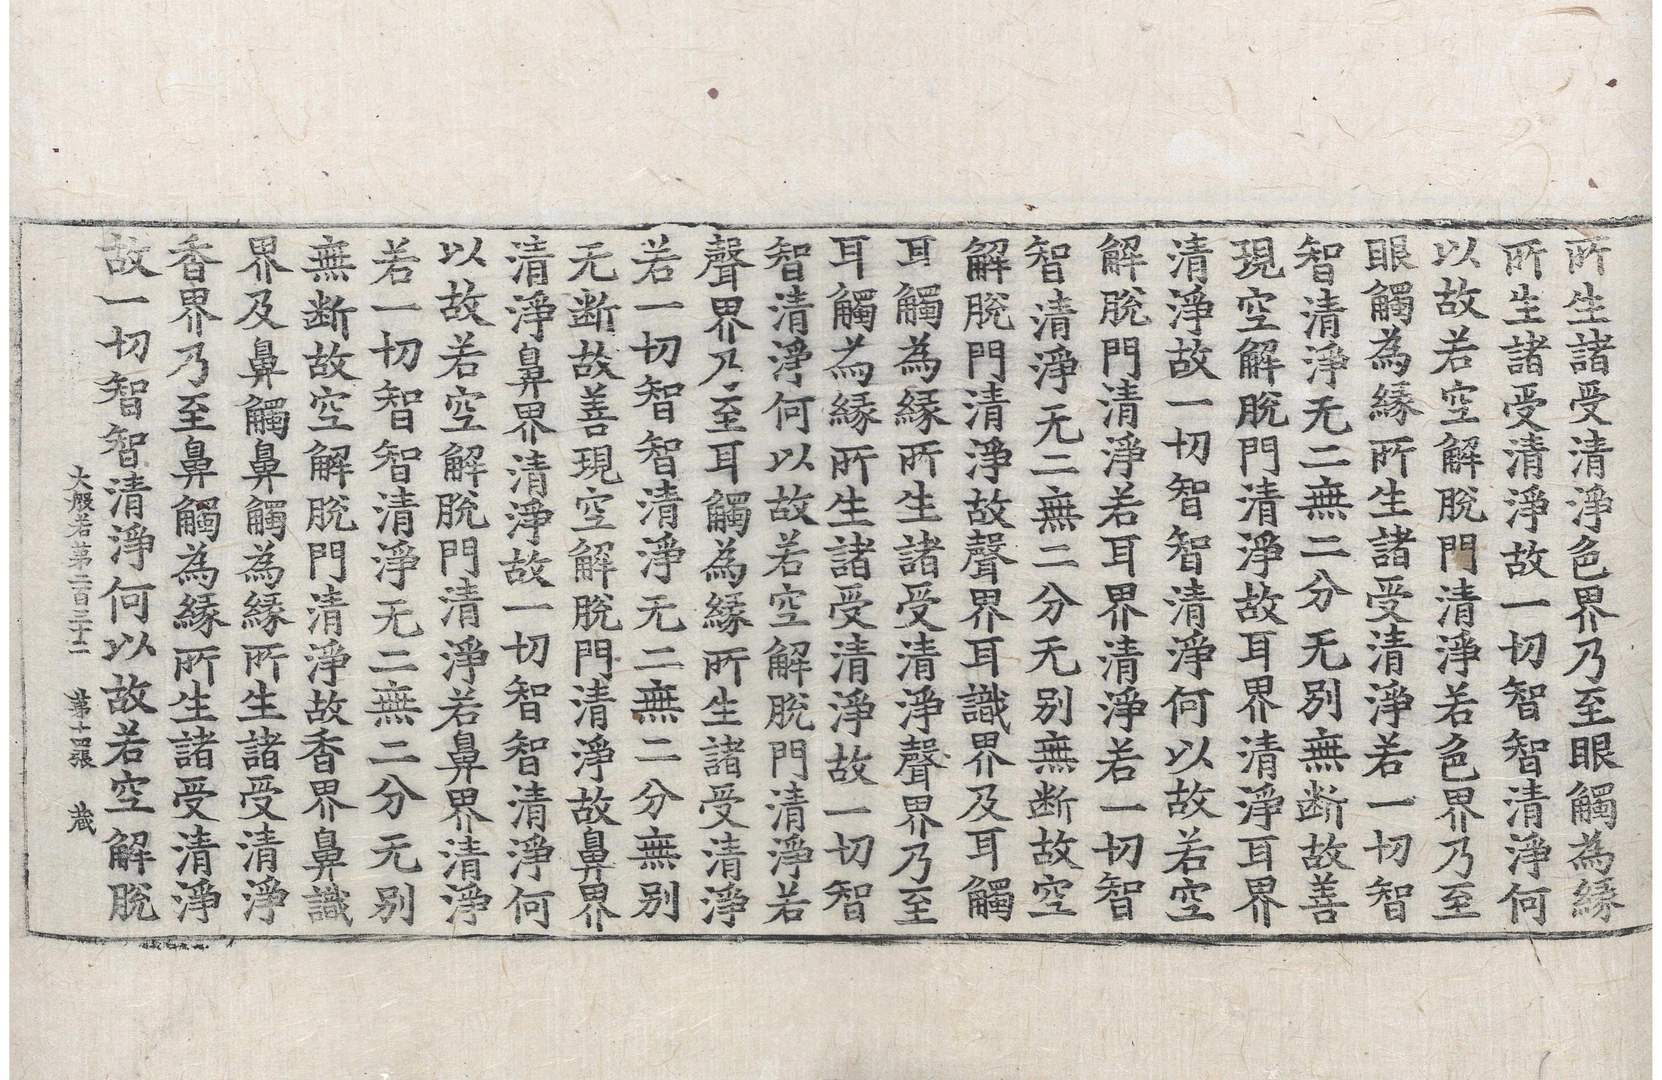 所生諸受清淨色界乃至眼觸為緣
所生諸受清淨故一切智智清淨何
以故若空解脫門清淨若色界乃至
眼觸為緣所生諸受清淨若一切智
智清淨无二無二分无別無断故善
現空解脫門清淨故耳界清淨耳界
清淨故一切智智清淨何以故若空
解脫門清淨若耳界清淨若一切智
智清淨无二無二分无別無断故空
解脫門清淨故聲界耳識界及耳觸
耳觸為緣所生諸受清淨聲界乃至
耳觸為緣所生諸受清淨故一切智
智清淨何以故若空解脫門清淨若
聲界乃至耳觸為緣所生諸受清淨
若一切智智清淨无二無二分無別
无断故善現空解脫門清淨故鼻界
清淨鼻界清淨故一切智智清淨何
以故若空解脫門清淨若鼻界清淨
若一切智智清淨无二無二分无別
無断故空解脫門清淨故香界鼻識
界及鼻觸鼻觸為緣所生諸受清淨
香界乃至鼻觸為緣所生諸受清淨
故一切智智清淨何以故若空解脫
大般若第二百三十二 第十四張 蔵